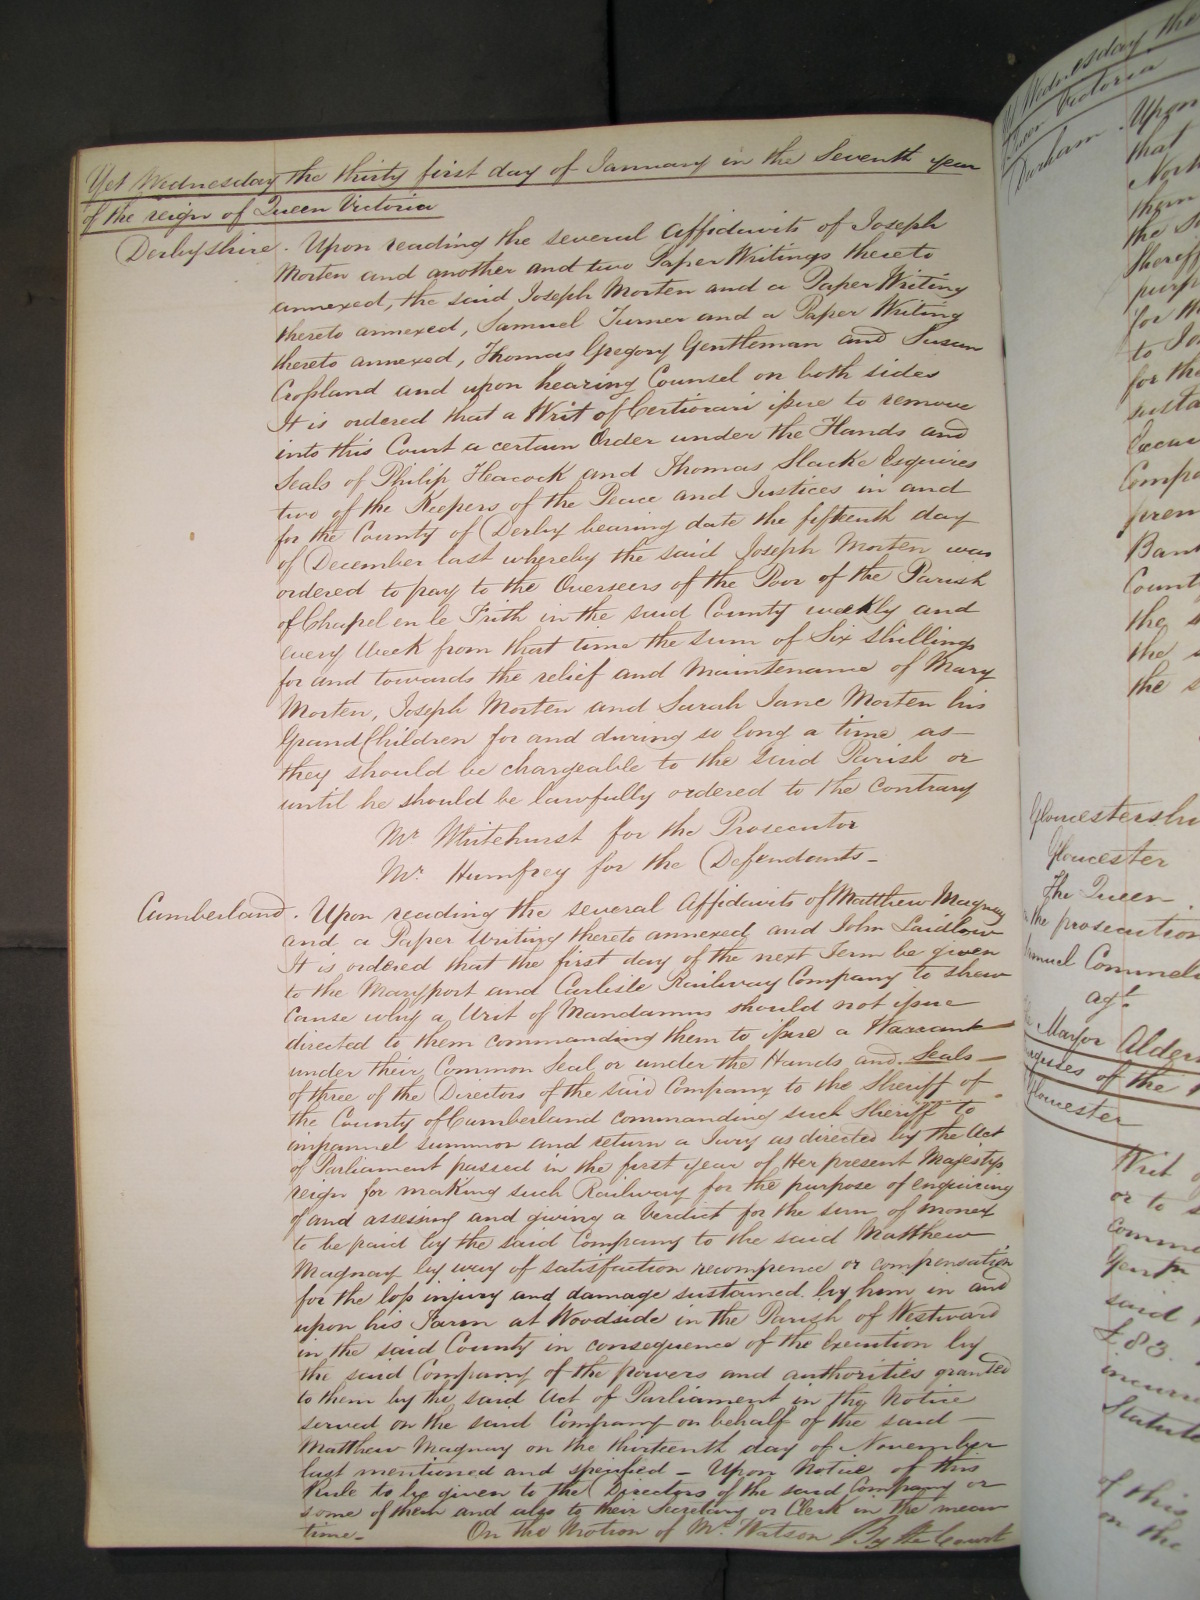 Yet Wednesday the thirty first day of January in the Seventh year
of the reign of Queen Victoria
Derbyshire. Upon reading the several Affidavits of Joseph
Morten and another and two Paper Writings thereto
annexed, the said Joseph Morten and a Paper Writing
thereto annexed, Samuel Turner and a Paper Writing
thereto annexed, Thomas Gregory Gentleman and Susan
Crossland and upon hearing Counsel on both sides
It is ordered that a Writ of Certiorari issue to remove
into this Court a certain Order under the Hands and
Seals of Philip Heacock and Thomas Slacke Esquires
two of the Keepers of the Peace and Justices in and
for the County of Derby bearing date the fifteenth day
of December last whereby the said Joseph Morten was
ordered to pay to the Overseers of the Poor of the Parish
of Chapel en le Frith in the said County weekly and
every Week from that time the sum of Six shillings
for and towards the relief and Maintenance of Mary
Morten, Joseph Morten and Sarah Jane Morten his
GrandChildren for and during so long a time as—
they should be chargeable to the said Parish or
until he should be lawfully ordered to the Contrary
Mr. Whitehurst for the Prosecutor
Mr. Humfrey for the Defendants—
Cumberland. Upon reading the several Affidavits of Matthew Magnay
and a Paper Writing thereto annexed and John Laidlow
It is ordered that the first day of the next Term be given
to the Maryport and Carlisle Railway Company to shew
cause why a Writ of Mandamus should not issue
directed to them commanding them to issue a Warrant—
under their Common Seal or under the Hands and Seals—
of three of the Directors of the said Company to the Sheriff of
the County of Cumberland commanding such Sheriff to
impannel summon and return a Jury as directed by the Act
of Parliament passed in the first year of Her present Majesty's
reign for making such Railway for the purpose of enquiring
of and assessing and giving a Verdict for the sum of money
to be paid by the said Company to the said Matthew
Magnay by way of satisfaction recompence or compensation
for the loss injury and damage sustained by him in and
upon his Farm at Woodside in the Parish of Westward
in the said County in consequence of the Execution by
the said Company of the powers and authorities granted
to them by the said Act of Parliament in the Notice
served on the said Company on behalf of the said—
Matthew Magnay on the thirteenth day of November
last mentioned and specified— Upon Notice of this
Rule to be given to the Directors of the said Company or
some of them and also to their Secretary or Clerk in the mean
time—
On the Motion of Mr. Watson By the Court
Wednesday the
Victoria
Durham. Upon
that
them
the
Sheriff
for
to
for the
Bank
County
the
the
the s
Gloucester
The Queen
the prosecution
agt.
Mayor Alderm
of the
Gloucester
Writ
or to
comma
said
£83.
Statute
of this
on the